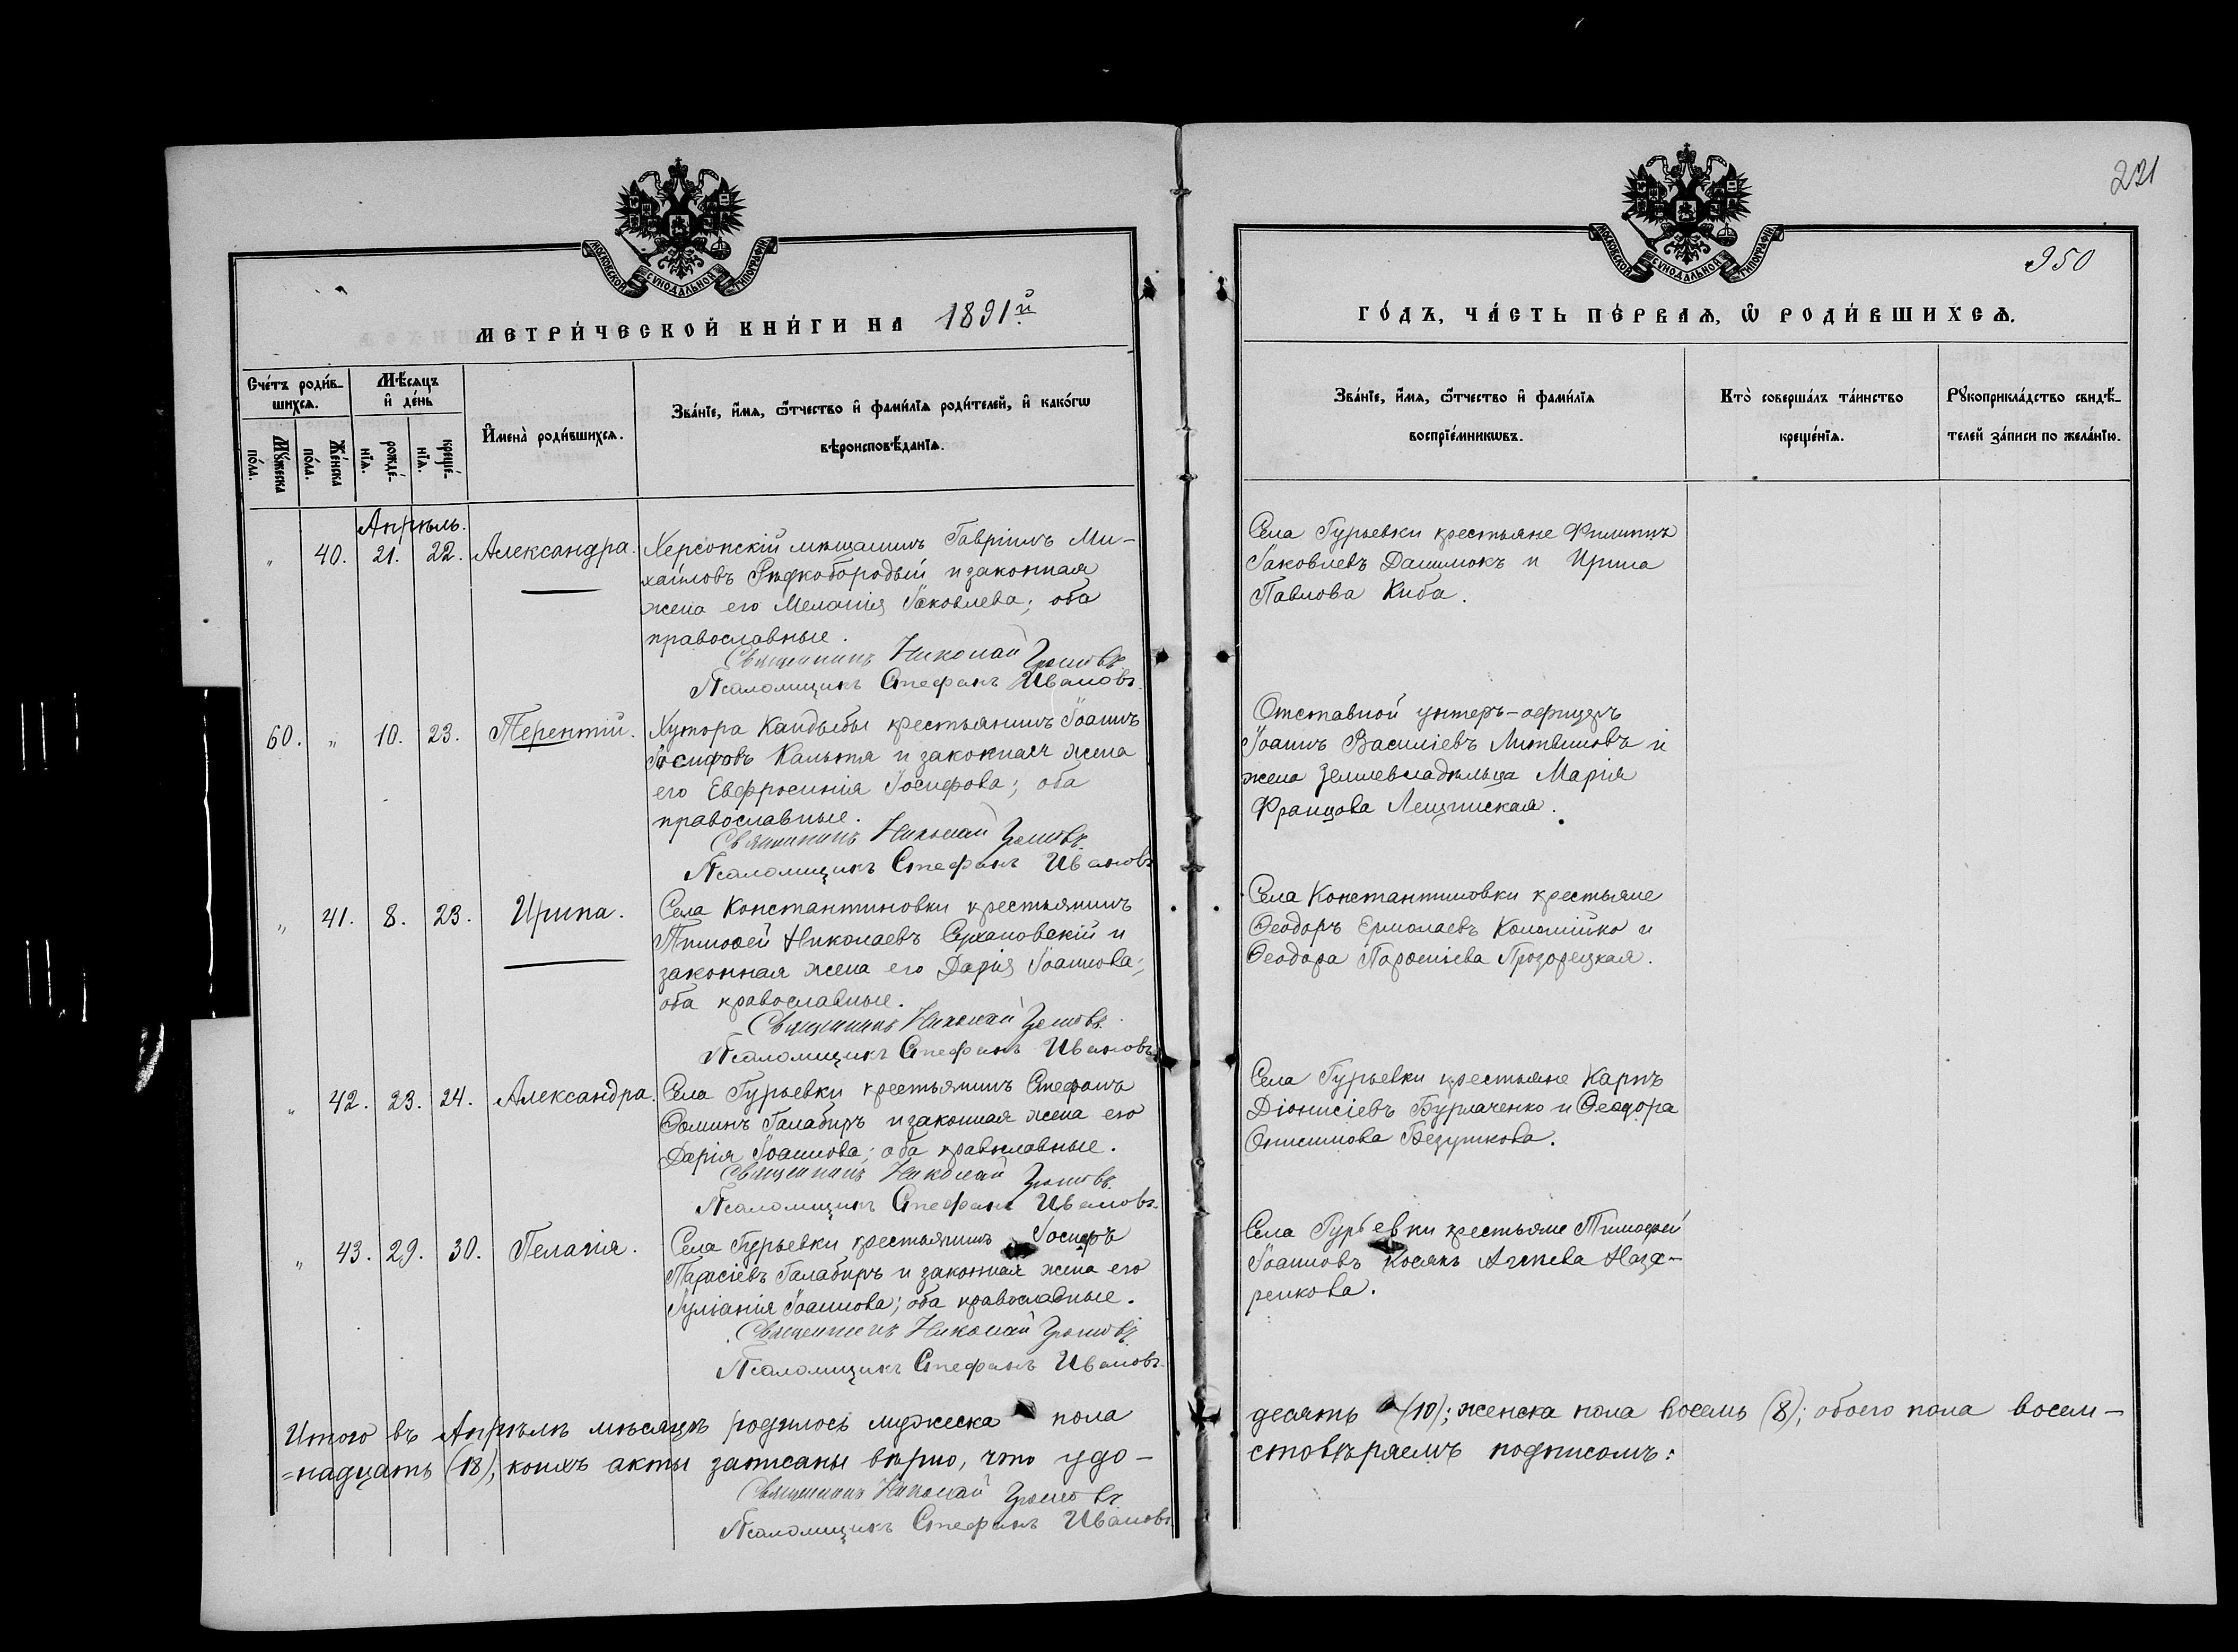 МОСКОВСКОЙ СѴНОДАЛЬНОЙ ТИПОГРАФІИ
МЕТРИ́ЧЕСКОЙ КНИ́ГИ НА 1891й
Сче́тъ роди́в-
шихсѧ.
Мꙋ́жеска по́ла.
Же́нска по́ла.
Мѣ́сѧцъ и҆ де́нь
рожде́-нїѧ.
креще́-нїѧ.
И҆мена̀ роди́вшихсѧ.
Зва́нїе, и҆́мѧ, ѻ҆́тчество и҆ фами́лїѧ роди́телей, и҆ како́гѡ
вѣроисповѣ́данїѧ.
Апрѣль.
„ 40. 21. 22. Александра. Херсонскій мѣщанинъ Гавріилъ Ми-
хаиловъ Рѣдкобородый и законная
жена его Меланія Іаковлева; оба
православные.
Священникъ Николай
Псаломщикъ Стефанъ Ивановъ.
60. „ 10. 23. Терентій. Хутора Кандыбы крестьянинъ Іоаннъ
Іосифовъ и законная жена
его Евфросинія Іосифова; оба
православные.
Священникъ Николай
Псаломщикъ Стефанъ Ивановъ
„ 41. 8. 23. Ирина. Села Константиновки крестьянинъ
Тимоѳей Николаевъ Сухановскій и
законная жена его Дарія Іоаннова;
оба православные.
Священникъ Николай
Псаломщикъ Стефанъ Ивановъ
„ 42. 23. 24. Александра. Села Гурьевки крестьянинъ Стефанъ
Ѳоминъ Галабиръ и законная жена его
Дарія Іоаннова; оба православные.
Священникъ Николай
Псаломщикъ Стефанъ Ивановъ.
„ 43. 29. 30. Пелагія. Села Гурьевки крестьянинъ Іосифъ
Тарасіевъ Галабиръ и законная жена его
Іуліанія Іоаннова; оба православные.
Священникъ Николай
Псаломщикъ Стефанъ Ивановъ.
Итого въ Апрѣлѣ мѣсяцѣ родилось мужеска пола
=надцать (18), коихъ акты записаны вѣрно, что удо-
Священникъ Николай
Псаломщикъ Стефанъ Ивановъ
221
МОСКОВСКОЙ СѴНОДАЛЬНОЙ ТИПОГРАФІИ
950
ГО́ДЪ, ЧА́СТЬ ПЕ́РВАѦ, Ѡ҆ РОДИ́ВШИХСѦ.
Зва́нїе, и҆́мѧ, ѻ҆́тчество и҆ фами́лїѧ
воспрїе́мникѡвъ.
Кто̀ соверша́лъ та́инство
креще́нїѧ.
Рꙋкоприкла́дство свидѣ́-
телей за́писи по жела́нїю.
Села Гурьевки крестьяне Филиппъ
Іаковлевъ Данилюкъ и Ирина
Павлова Киба.
Отставной унтеръ-офицеръ
Іоаннъ Василіевъ Литвиновъ и
жена землевладѣльца Марія
Францова Лещинская.
Села Константиновки крестьяне
Ѳеодоръ Ермолаевъ Коломійко и
Ѳеодора Прозорецкая.
Села Гурьевки крестьяне Карпъ
Діонисіевъ Бурлаченко и Ѳеодора
Онисимова Безушкова.
Села Гурьевки крестьяне Тимоѳей
Іоанновъ Косякъ Наза-
ренкова.
десять (10); женска пола восемь (8); обоего пола восем-
стовѣряемъ подписомъ: